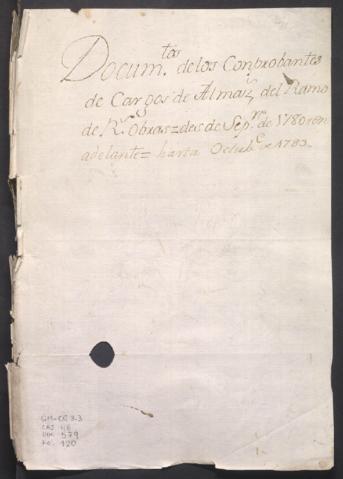 Docum.tos de los Conprobantes
de Cargos de Almaz.s del Ramo
de R.s Obras = desde Sep.re de 1780 en
adelante = hasta Octub.e de 1783.
GM-CO 3-3
CAJ 46
DOC 579
FOL 120